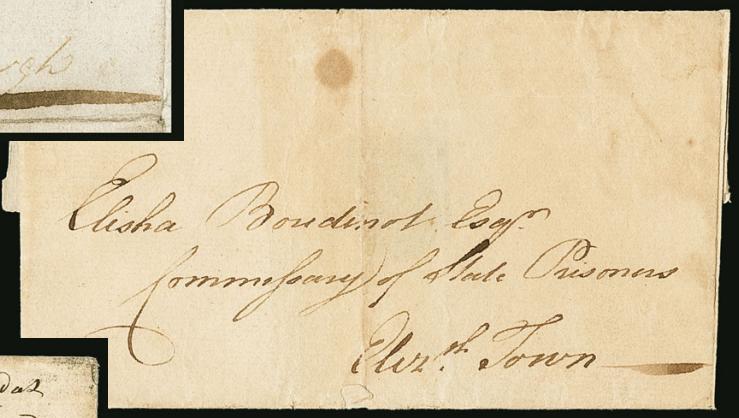 Elisha Boudinot Esqr.
Commissary of State Prisoners
Elizth. Town